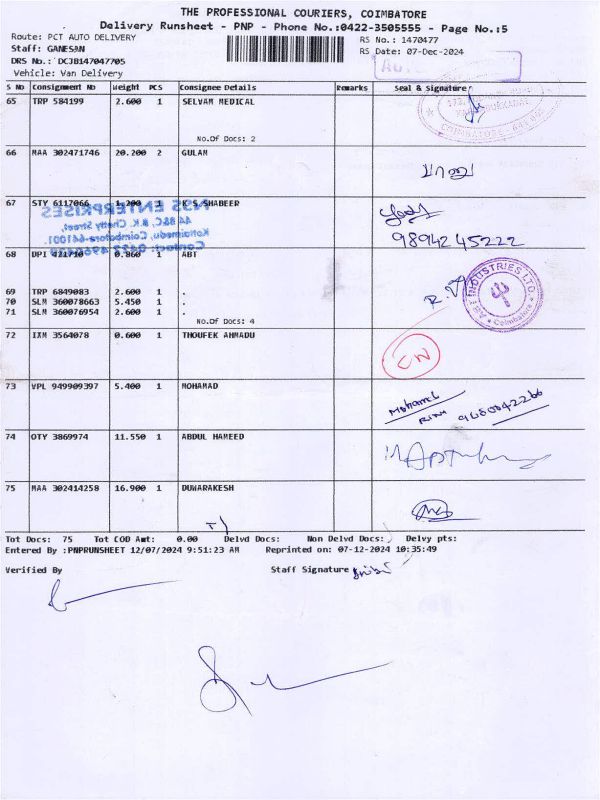 THE PROFESSIONAL COURIERS, COIMBATORE
Delivery Runsheet - PNP - Phone No.:0422-3505555 - Page No.:5
Route: PCT AUTO DELIVERY
RS No.: 1470477
Staff: GANESAN
RS Date: 07-Dec-2024
DRS No.: DCJB147047705
Vehicle: Van Delivery
S No Consignment No Weight PCS Consignee Details Remarks Seal & Signature
65 TRP 584199 2.600 1 SELVAM MEDICAL
COIMBATORE
No.Of Docs: 2
66 MAA 302471746 20.200 2 GULAM
67 STY 6117066 1.200 1 K S SHABEER
NSS ENTERPRISES
44 B&C, B.K. Chetty Street,
Kottaimedu, Coimbatore-641001.
9894245222
68 DPI 421710 0.860 1 ABT
69 TRP 6849083 2.600 1 .
70 SLM 360078663 5.450 1 .
71 SLM 360076954 2.600 1 .
INDUSTRIES LTD. Coimbatore
No.Of Docs: 4
72 IXM 3564078 0.600 1 THOUFEK AHMADU
CN
73 VPL 949909397 5.400 1 MOHAMAD
Mohamed
74 OTY 3869974 11.550 1 ABDUL HAMEED
75 MAA 302414258 16.900 1 DUWARAKESH
Tot Docs: 75 Tot COD Amt: 0.00 Delvd Docs: Non Delvd Docs: Delvy pts:
Entered By :PNPRUNSHEET 12/07/2024 9:51:23 AM Reprinted on: 07-12-2024 10:35:49
Verified By Staff Signature